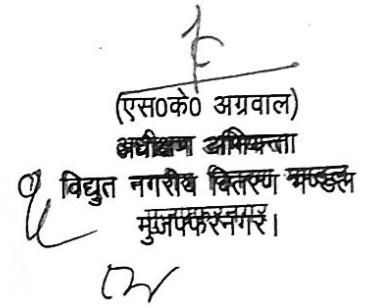 (एस०के० अग्रवाल)
अधीक्षण अभियन्ता
विद्युत नगरीय वितरण मण्डल
मुजफ्फरनगर।